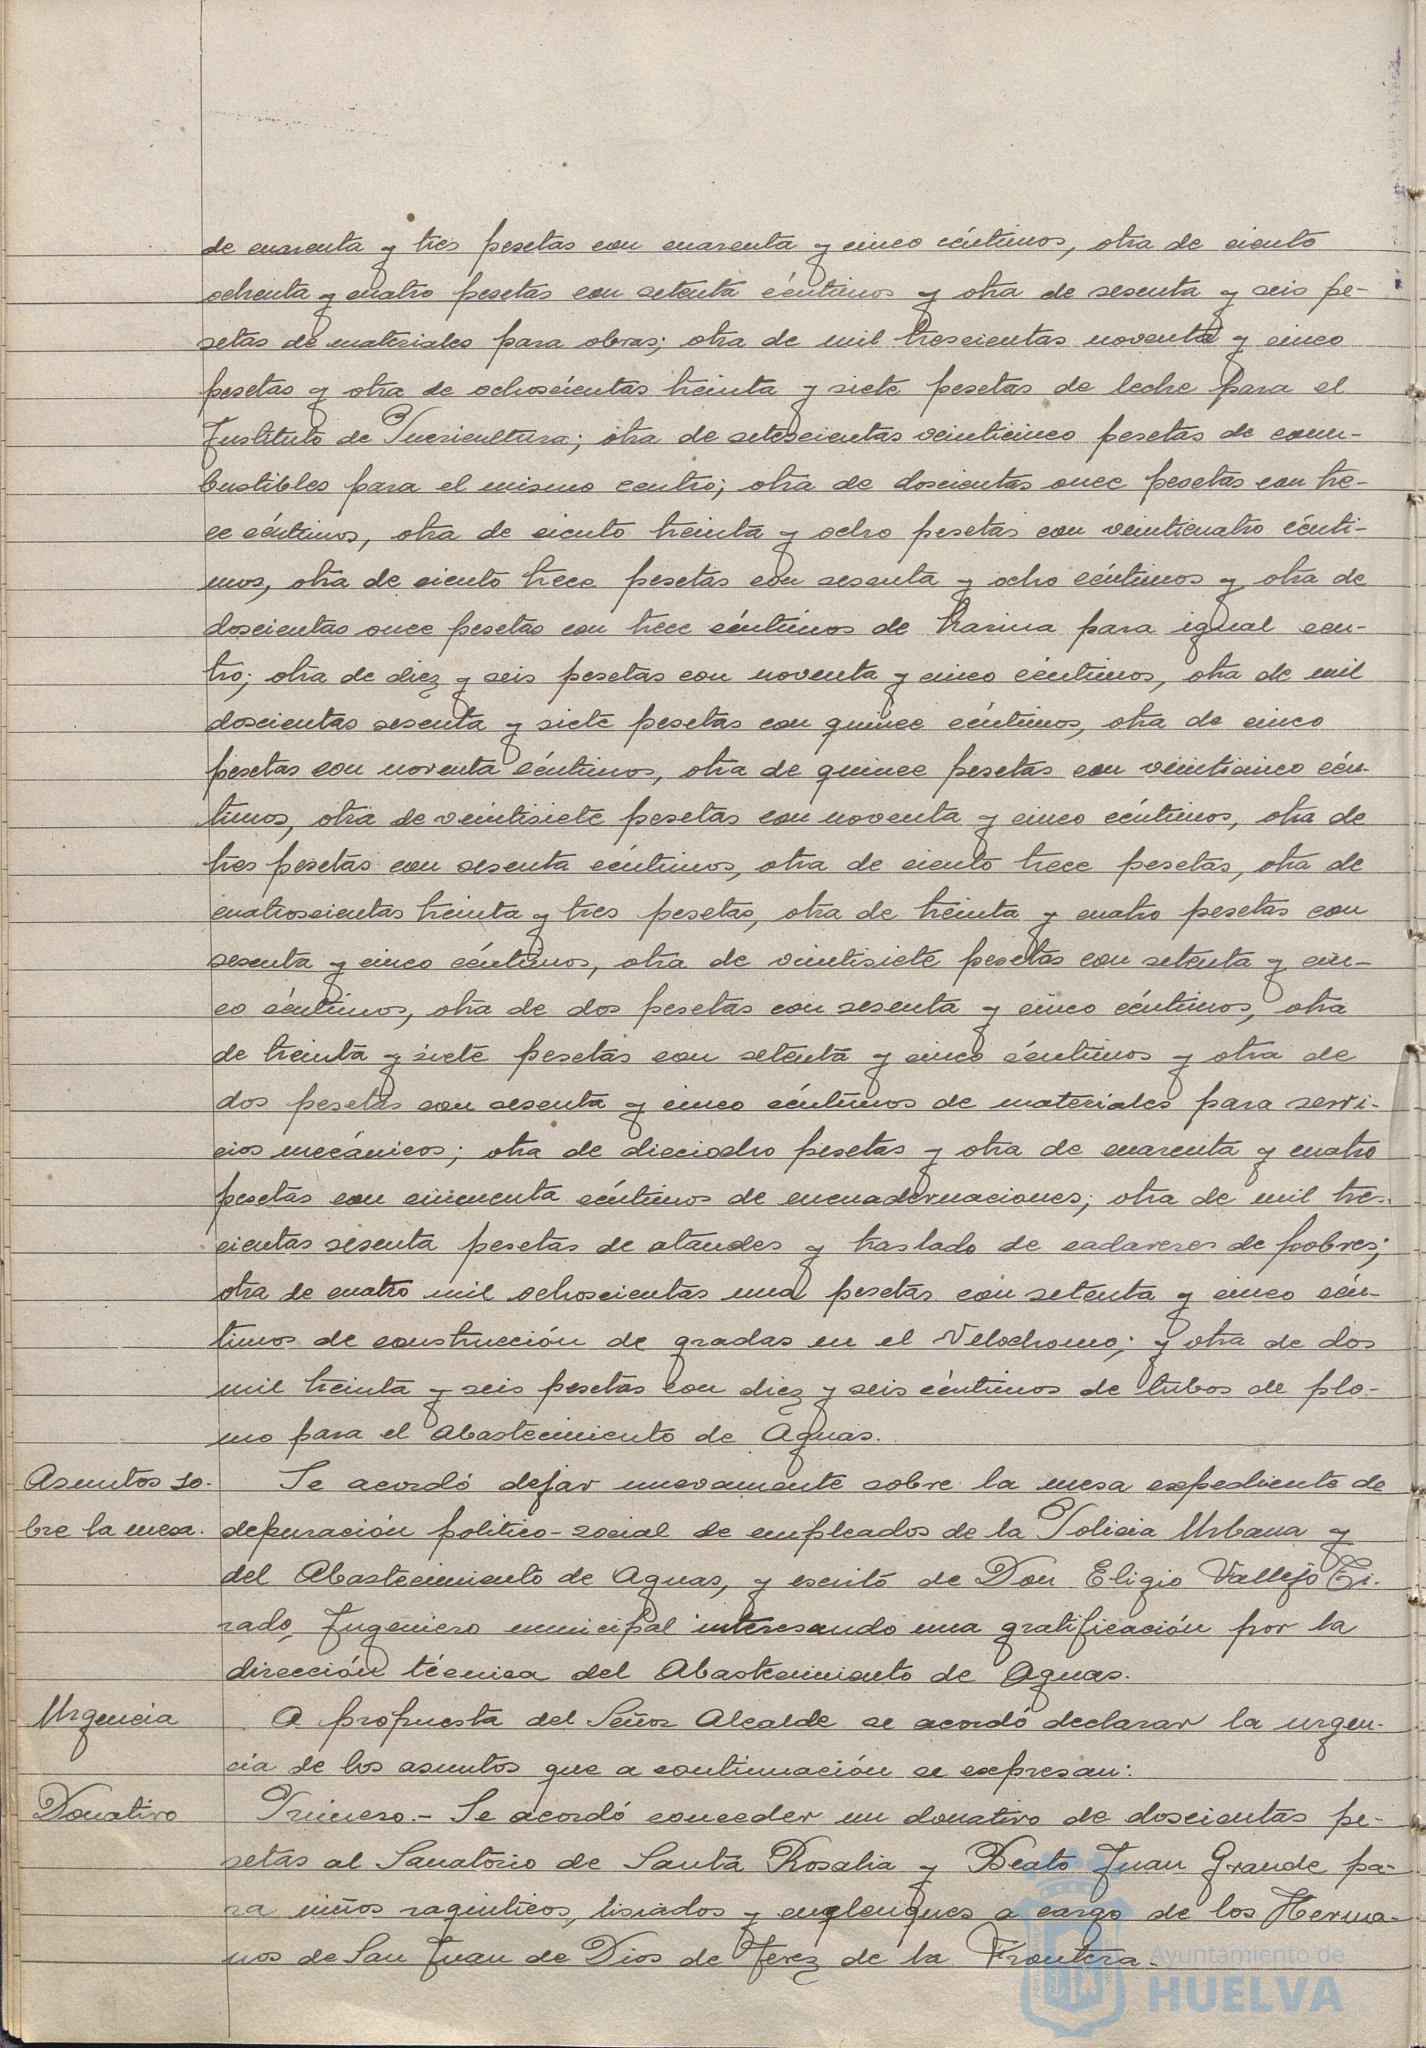 de cuarenta y tres pesetas con cuarenta y cinco céntimos, otra de ciento
ochenta y cuatro pesetas con setenta céntimos y otra de sesenta y seis pe-
setas de materiales para obras; otra de mil trescientas noventa y cinco
pesetas y otra de ochoscientas treinta y siete pesetas de leche para el
Instituto de Puericultura; otra de setescientas veinticinco pesetas de com-
bustibles para el mismo centro; otra de doscientas once pesetas con tre-
ce céntimos, otra de ciento treinta y ocho pesetas con veinticuatro cénti-
mos, otra de ciento trece pesetas con sesenta y ocho céntimos y otra de
doscientas once pesetas con trece céntimos de harina para igual cen-
tro; otra de diez y seis pesetas con noventa y cinco céntimos, otra de mil
doscientas sesenta y siete pesetas con quince céntimos, otra de cinco
pesetas con noventa céntimos, otra de quince pesetas con veinticinco cén-
timos, otra de veintisiete pesetas con noventa y cinco céntimos, otra de
tres pesetas con sesenta céntimos, otra de ciento trece pesetas, otra de
cuatroscientas treinta y tres pesetas, otra de treinta y cuatro pesetas con
sesenta y cinco céntimos, otra de veintisiete pesetas con setenta y cin-
co céntimos, otra de dos pesetas con sesenta y cinco céntimos, otra
de treinta y siete pesetas con setenta y cinco céntimos y otra de
dos pesetas con sesenta y cinco céntimos de materiales para servi-
cios mecánicos; otra de dieciocho pesetas y otra de cuarenta y cuatro
pesetas con cincuenta céntimos de encuadernaciones; otra de mil tres-
cientas sesenta pesetas de ataudes y traslado de cadaveres de pobres;
otra de cuatro mil ochoscientas una pesetas con setenta y cinco cén-
timos de construcción de gradas en el Velodromo; y otra de dos
mil treinta y seis pesetas con diez y seis céntimos de tubos de plo-
mo para el Abastecimiento de Aguas.
Asuntos so-
bre la mesa.
Se acordó dejar nuevamente sobre la mesa expediente de
depuración politico-social de empleados de la Policia Urbana y
del Abastecimiento de Aguas, y escrito de Don Eligio Vallejo Ti-
rado, Ingeniero municipal interesando una gratificación por la
dirección técnica del Abastecimiento de Aguas.
Urgencia
A propuesta del Señor Alcalde se acordó declarar la urgen-
cia de los asuntos que a continuación se expresan:
Donativo
Primero.- Se acordó conceder un donativo de doscientas pe-
setas al Sanatorio de Santa Rosalia y Beato Juan Grande pa-
ra niños raquiticos, lisiados y enclenques a cargo de los Herma-
nos de San Juan de Dios de Jerez de la Frontera.
Ayuntamiento de
HUELVA